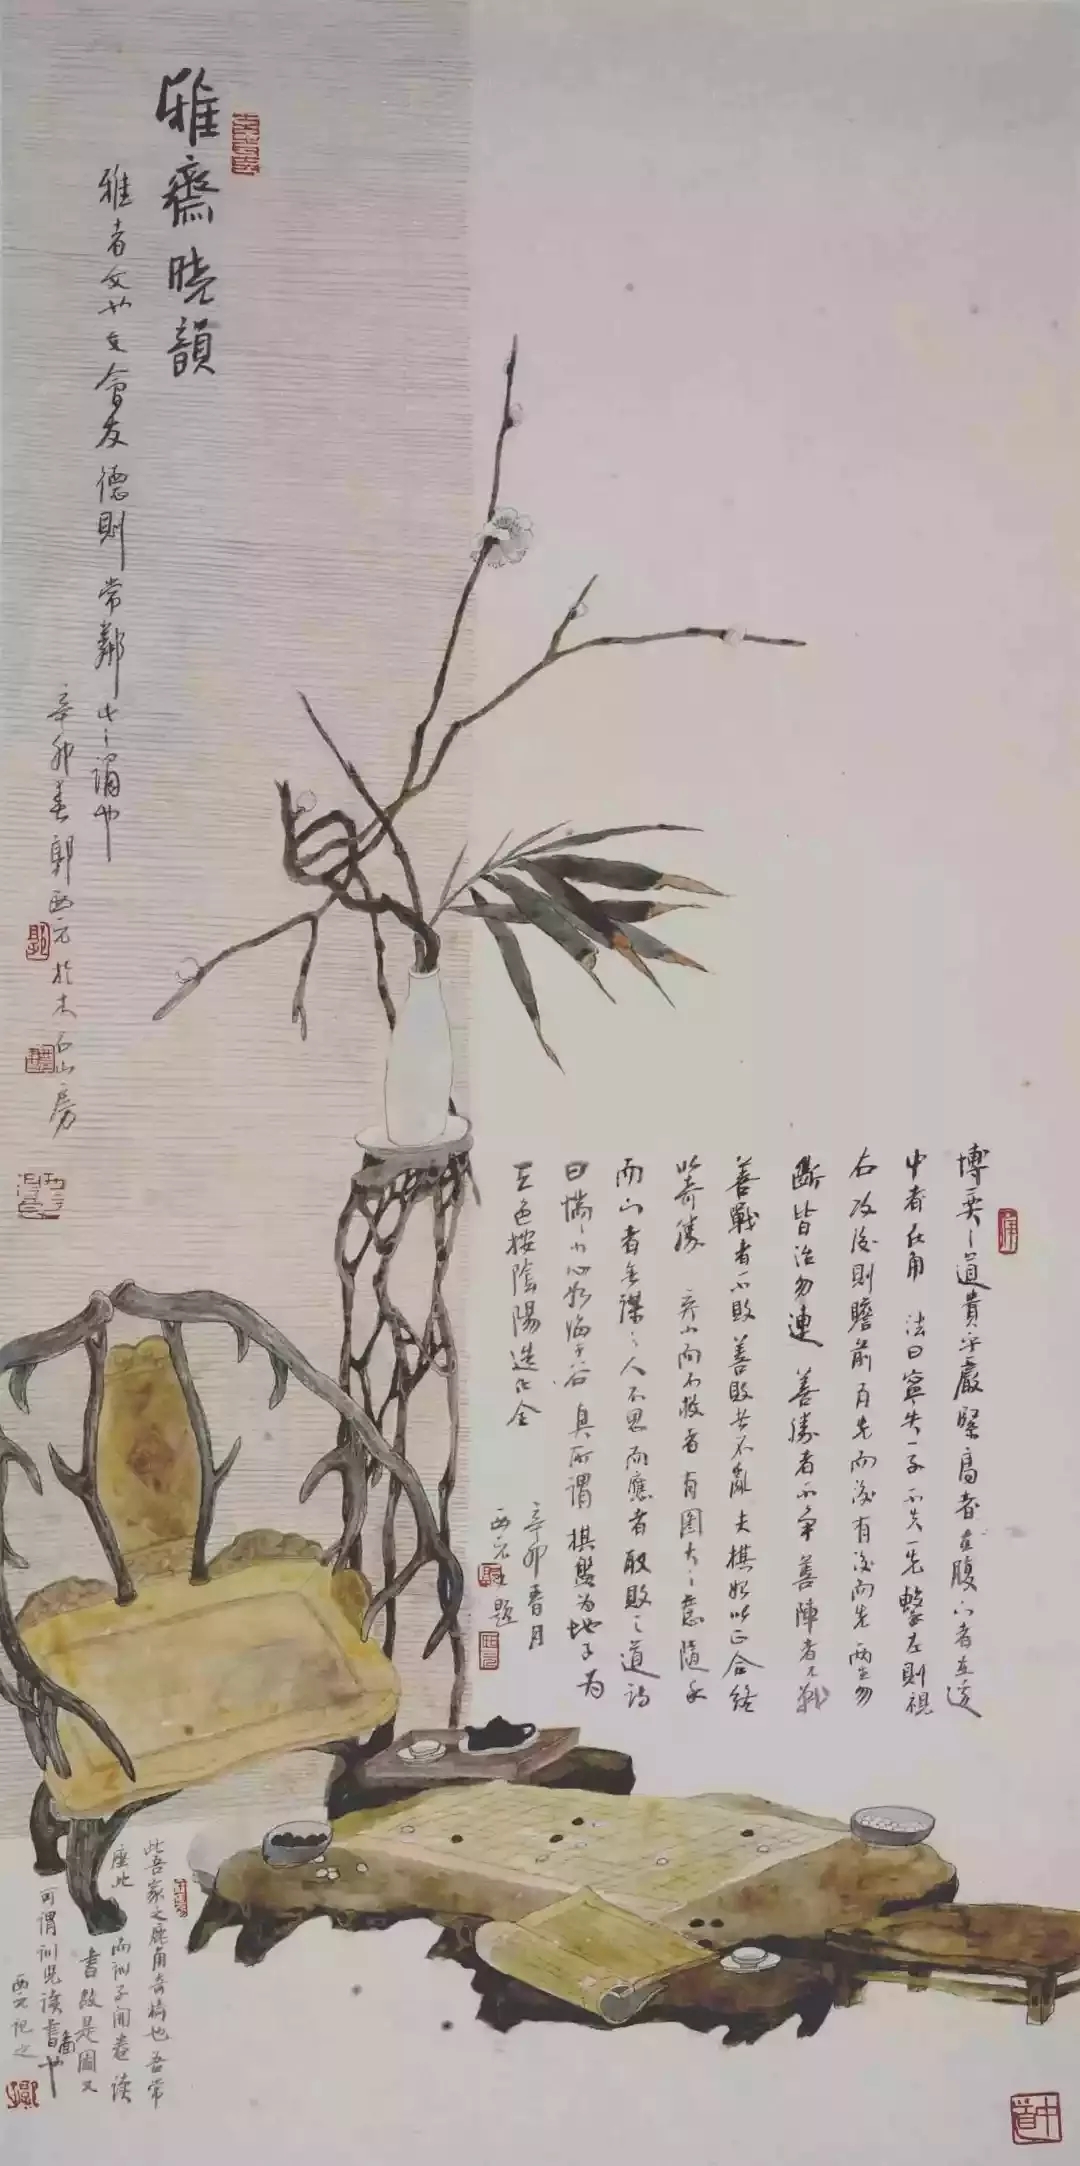 雅齋曉韻
雅者文也文會友德則常鄰此之謂也
辛卯春郭西元於木石山房
博弈之道貴乎嚴緊高者在腹下者在邊
中者在角 法曰寧失一子不失一先擊左則視
右攻後則瞻前有先而後有後而先兩生勿
斷皆活勿連 善勝者不爭善陣者不戰
善戰者不敗善敗者不亂夫棋始以正合終
以奇勝 弃小而不救者有圖大之意隨手
而下者無謀之人不思而應者取敗之道詩
曰惴惴小心如臨于谷 真所謂棋盤為地子為
五色按陰陽造化全
辛卯春月
西元又題
此吾家之鹿角奇椅也吾常
座此 而訓子開卷讀
書故是圖又
可謂訓兒讀書圖也
西元記之